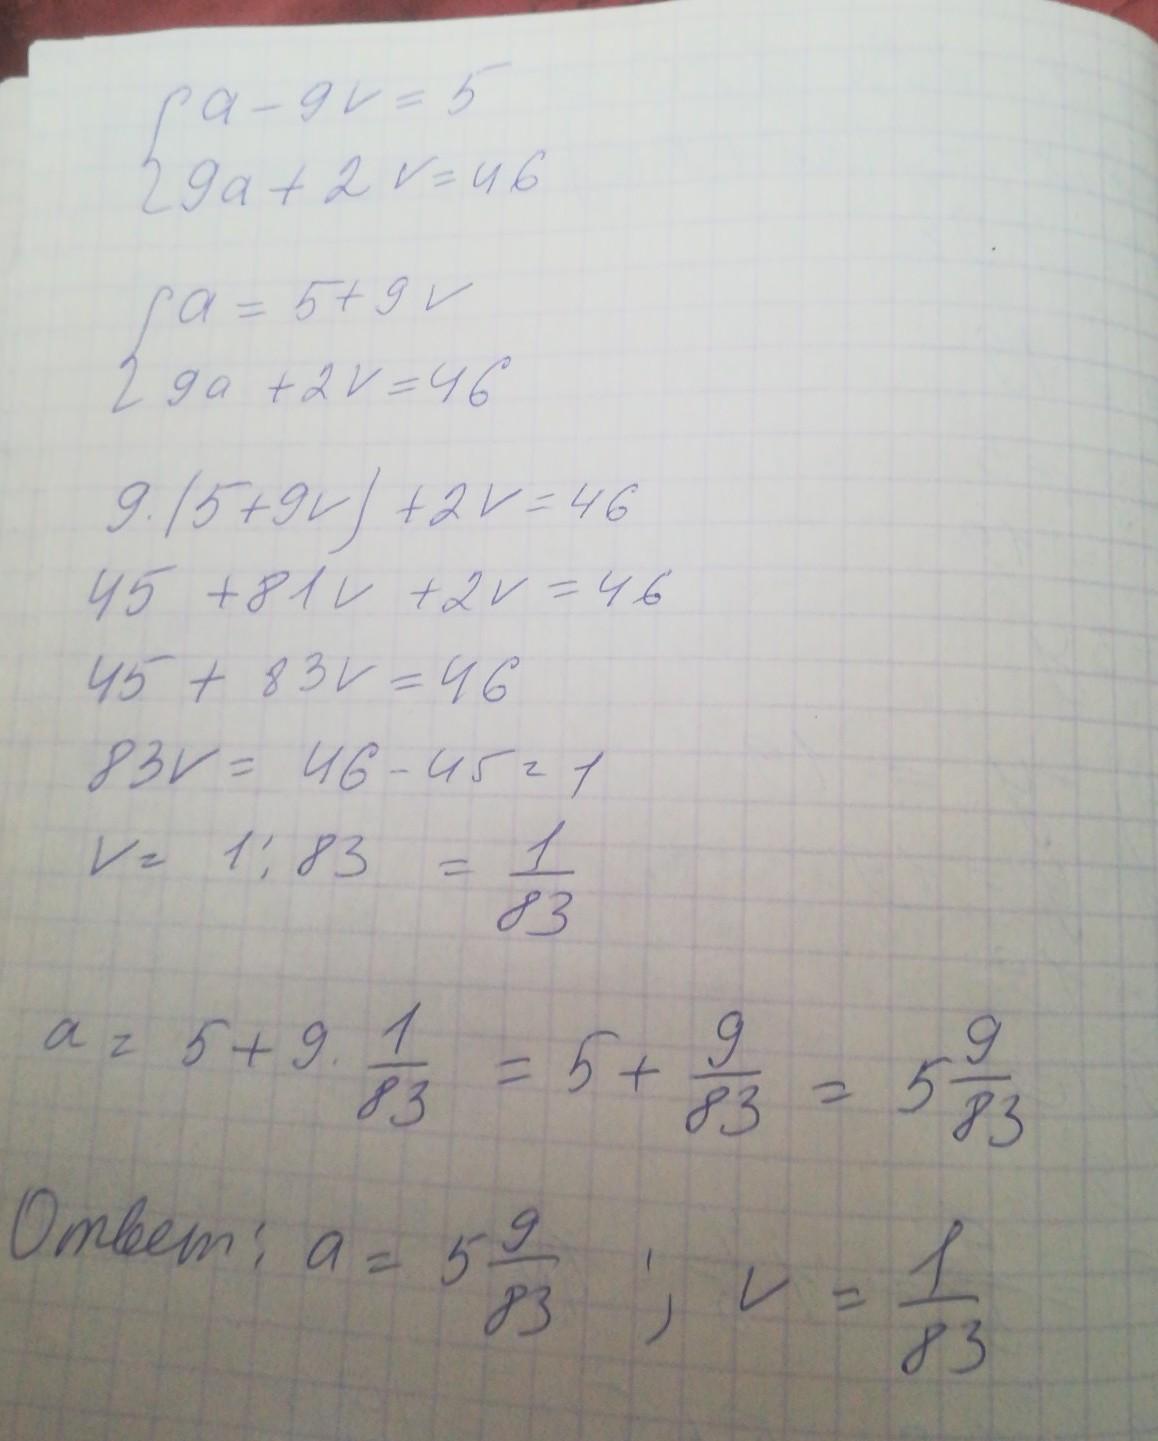 {a - 9v = 5
{9a + 2v = 46
{a = 5 + 9v
{9a + 2v = 46
9·(5+9v) + 2v = 46
45 + 81v + 2v = 46
45 + 83v = 46
83v = 46 - 45 = 1
v = 1 : 83 = 1/83
a = 5 + 9 · 1/83 = 5 + 9/83 = 5 9/83
Ответ: a = 5 9/83 ; v = 1/83